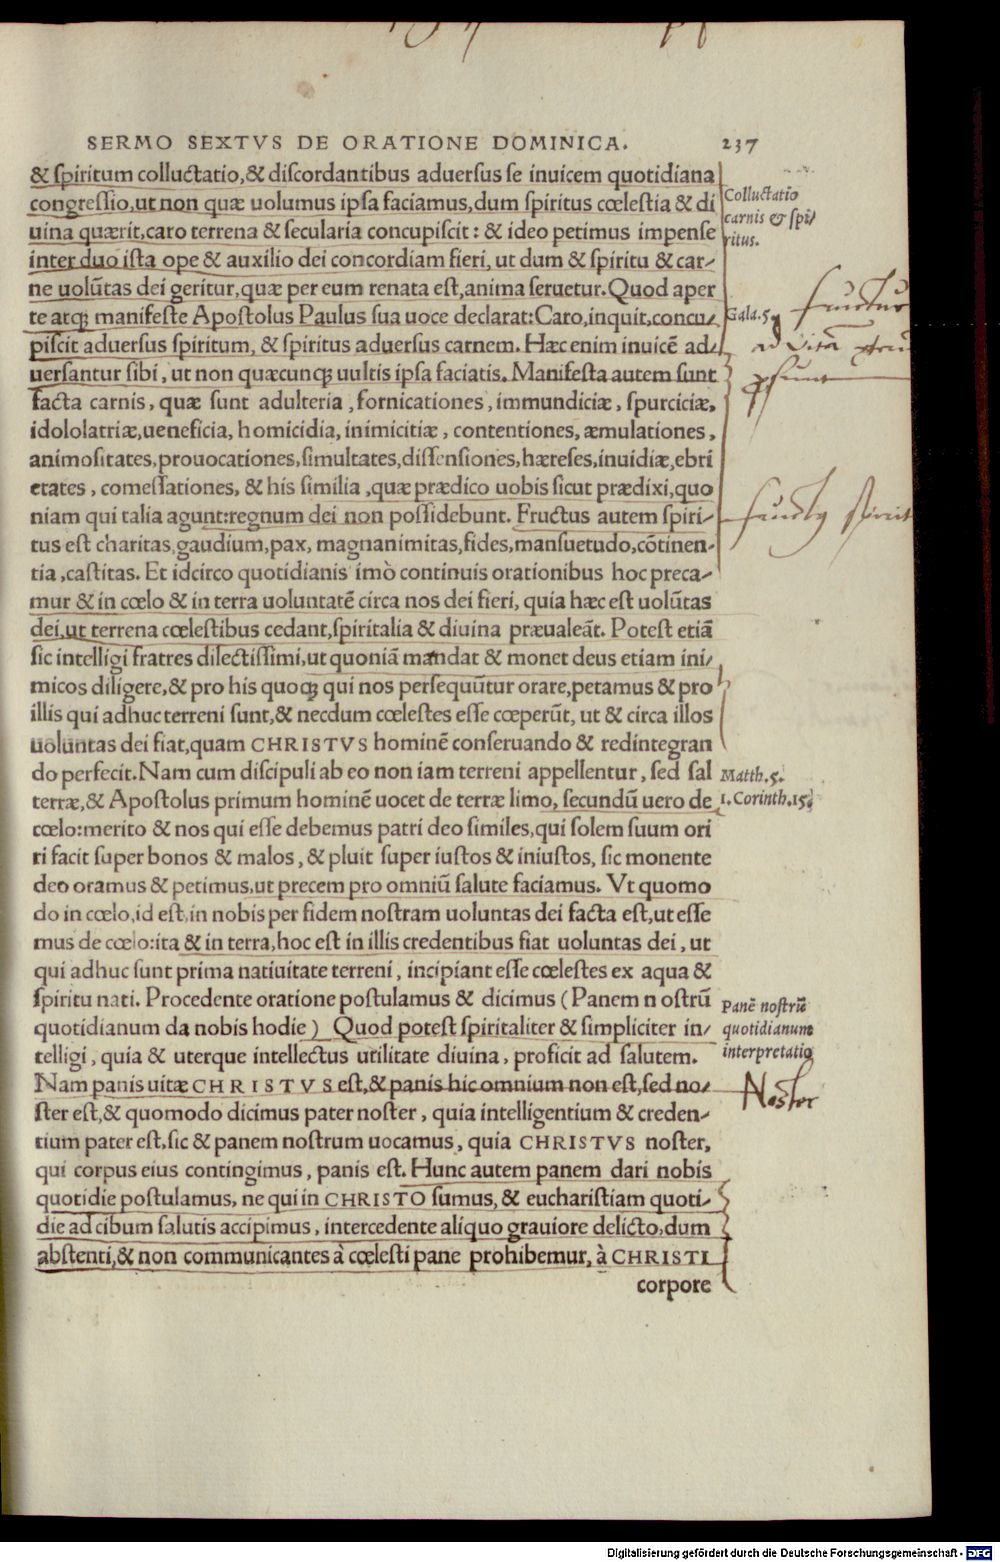 SERMO SEXTVS DE ORATIONE DOMINICA. 237
& spiritum colluctatio,& discordantibus aduersus se inuicem quotidiana
congressio,ut non quæ uolumus ipsa faciamus,dum spiritus cœlestia & di
uina quærit,caro terrena & secularia concupiscit: & ideo petimus impense
inter duo ista ope & auxilio dei concordiam fieri, ut dum & spiritu & car-
ne uolūtas dei geritur,quæ per eum renata est,anima seruetur.Quod aper
te atqꝫ manifeste Apostolus Paulus sua uoce declarat:Caro,inquit,concu-
piscit aduersus spiritum, & spiritus aduersus carnem. Hæc enim inuicē ad-
uersantur sibi, ut non quæcunqꝫ uultis ipsa faciatis. Manifesta autem sunt
facta carnis, quæ sunt adulteria, fornicationes, immundiciæ, spurciciæ,
idololatriæ,ueneficia, homicidia, inimicitiæ, contentiones, æmulationes,
animositates,prouocationes,simultates,dissensiones,hæreses,inuidiæ,ebri
etates, comessationes, & his similia, quæ prædico uobis sicut prædixi,quo
niam qui talia agunt:regnum dei non possidebunt. Fructus autem spiri-
tus est charitas,gaudium,pax, magnanimitas,fides,mansuetudo,cōtinen-
tia,castitas. Et idcirco quotidianis imò continuis orationibus hoc preca-
mur & in cœlo & in terra uoluntatē circa nos dei fieri, quia hæc est uolūtas
dei,ut terrena cœlestibus cedant,spiritalia & diuina præualeāt. Potest etiā
sic intelligi fratres dilectissimi,ut quoniā mandat & monet deus etiam ini-
micos diligere,& pro his quoqꝫ qui nos persequūtur orare,petamus & pro
illis qui adhuc terreni sunt,& necdum cœlestes esse cœperūt, ut & circa illos
uoluntas dei fiat,quam CHRISTVS hominē conseruando & redintegran
do perfecit.Nam cum discipuli ab eo non iam terreni appellentur, sed sal
terræ,& Apostolus primum hominē uocet de terræ limo, secundū uero de
cœlo:merito & nos qui esse debemus patri deo similes,qui solem suum ori
ri facit super bonos & malos, & pluit super iustos & iniustos, sic monente
deo oramus & petimus,ut precem pro omniū salute faciamus. Vt quomo
do in cœlo,id est,in nobis per fidem nostram uoluntas dei facta est,ut esse
mus de cœlo:ita & in terra,hoc est in illis credentibus fiat uoluntas dei, ut
qui adhuc sunt prima natiuitate terreni, incipiant esse cœlestes ex aqua &
spiritu nati. Procedente oratione postulamus & dicimus (Panem nostrū
quotidianum da nobis hodie) Quod potest spiritaliter & simpliciter in-
telligi, quia & uterque intellectus utilitate diuina, proficit ad salutem.
Nam panis uitæ CHRISTVS est,& panis hic omnium non est,sed no-
ster est,& quomodo dicimus pater noster, quia intelligentium & creden-
tium pater est,sic & panem nostrum uocamus, quia CHRISTVS noster,
qui corpus eius contingimus, panis est. Hunc autem panem dari nobis
quotidie postulamus, ne qui in CHRISTO sumus, & eucharistiam quoti-
die ad cibum salutis accipimus, intercedente aliquo grauiore delicto,dum
abstenti,& non communicantes à cœlesti pane prohibemur, à CHRISTI
corpore
Colluctatio
carnis & spi-
ritus.
Gala.5.
ad vitā
Matth.5.
1.Corinth.15.
Panē nostrū
quotidianum
interpretatio
Noster
Digitalisierung gefördert durch die Deutsche Forschungsgemeinschaft - DFG